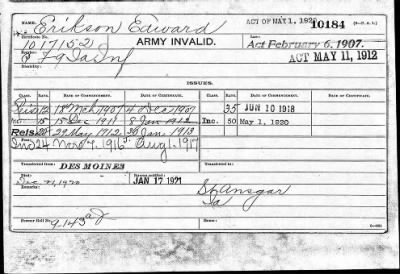 NAME, Erikson Edward ACT OF MAY 1, 1920 10184
Certificate No. 1017152 ARMY INVALID. Act February 6, 1907.
F 9 Ia Inf ACT MAY 11, 1912
ISSUES.
CLASS. RATE. DATE OF COMMENCEMENT. DATE OF CERTIFICATE. CLASS. RATE. DATE OF COMMENCEMENT. DATE OF CERTIFICATE.
12 18 Mch 1907 4 Dec 1907 35 JUN 10 1918
15 15 Dec 1911 8 Jan 1912 Inc. 50 May 1, 1920
Reis. 29 May 1912 30 Jan 1913
24 Nov 7. 1916 Aug 1-1917
Transferred from DES MOINES
JAN 17 1921 St Ansgar
Ia